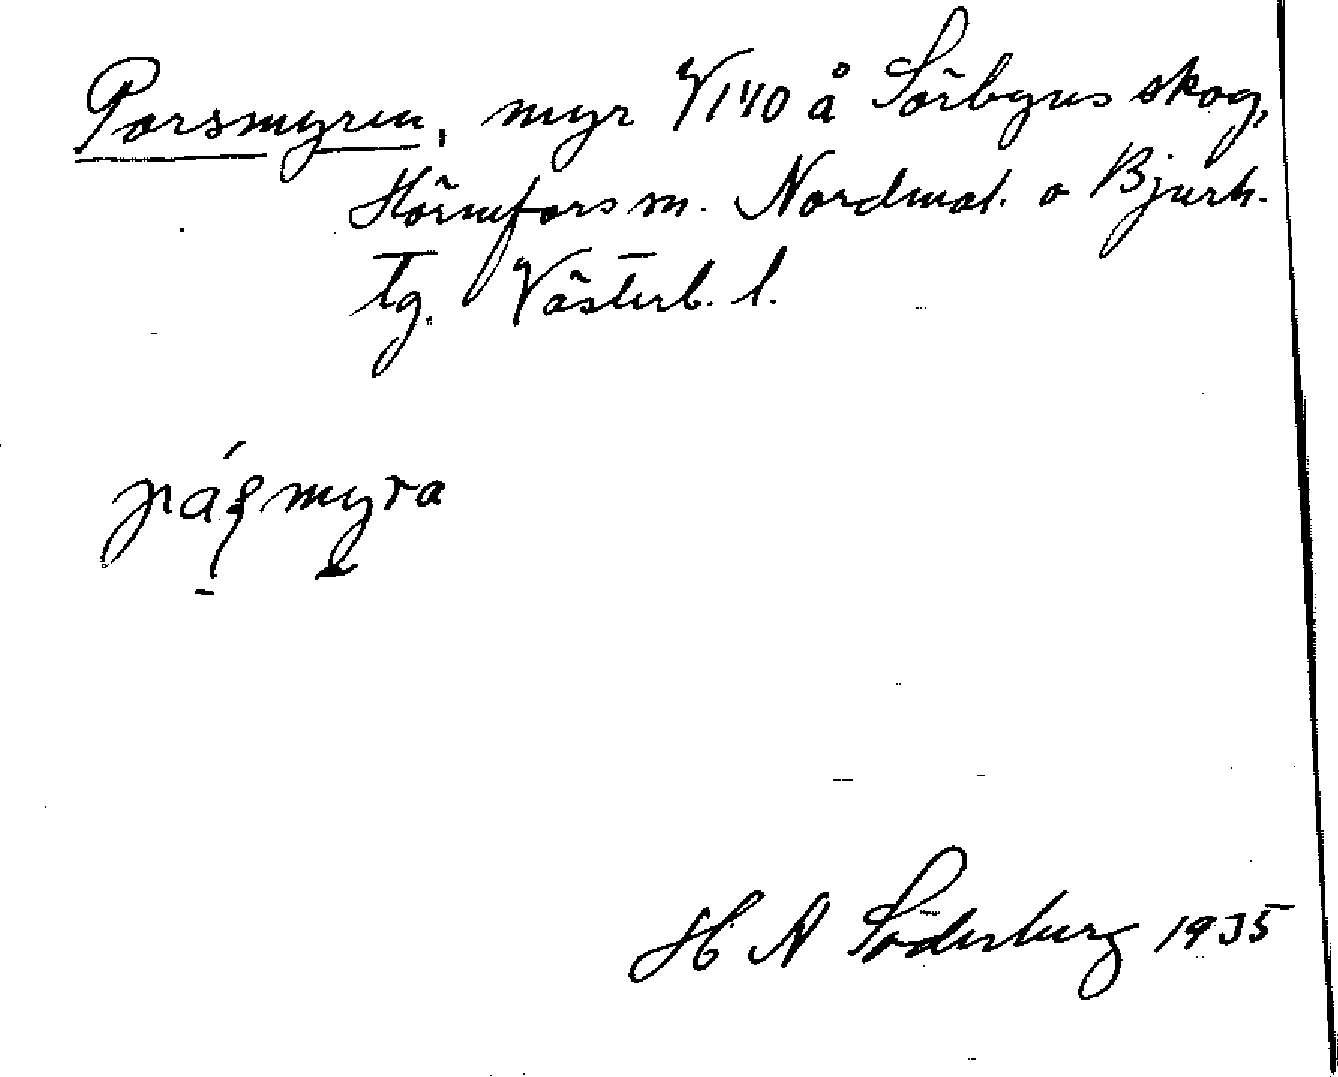 Porsmyren, myr V140 å Sörbyns skog,
Hörnefors sn. Nordmal. o Bjurh.
tg. Västerb. l.
påʂmyra
H N Söderberg 1935